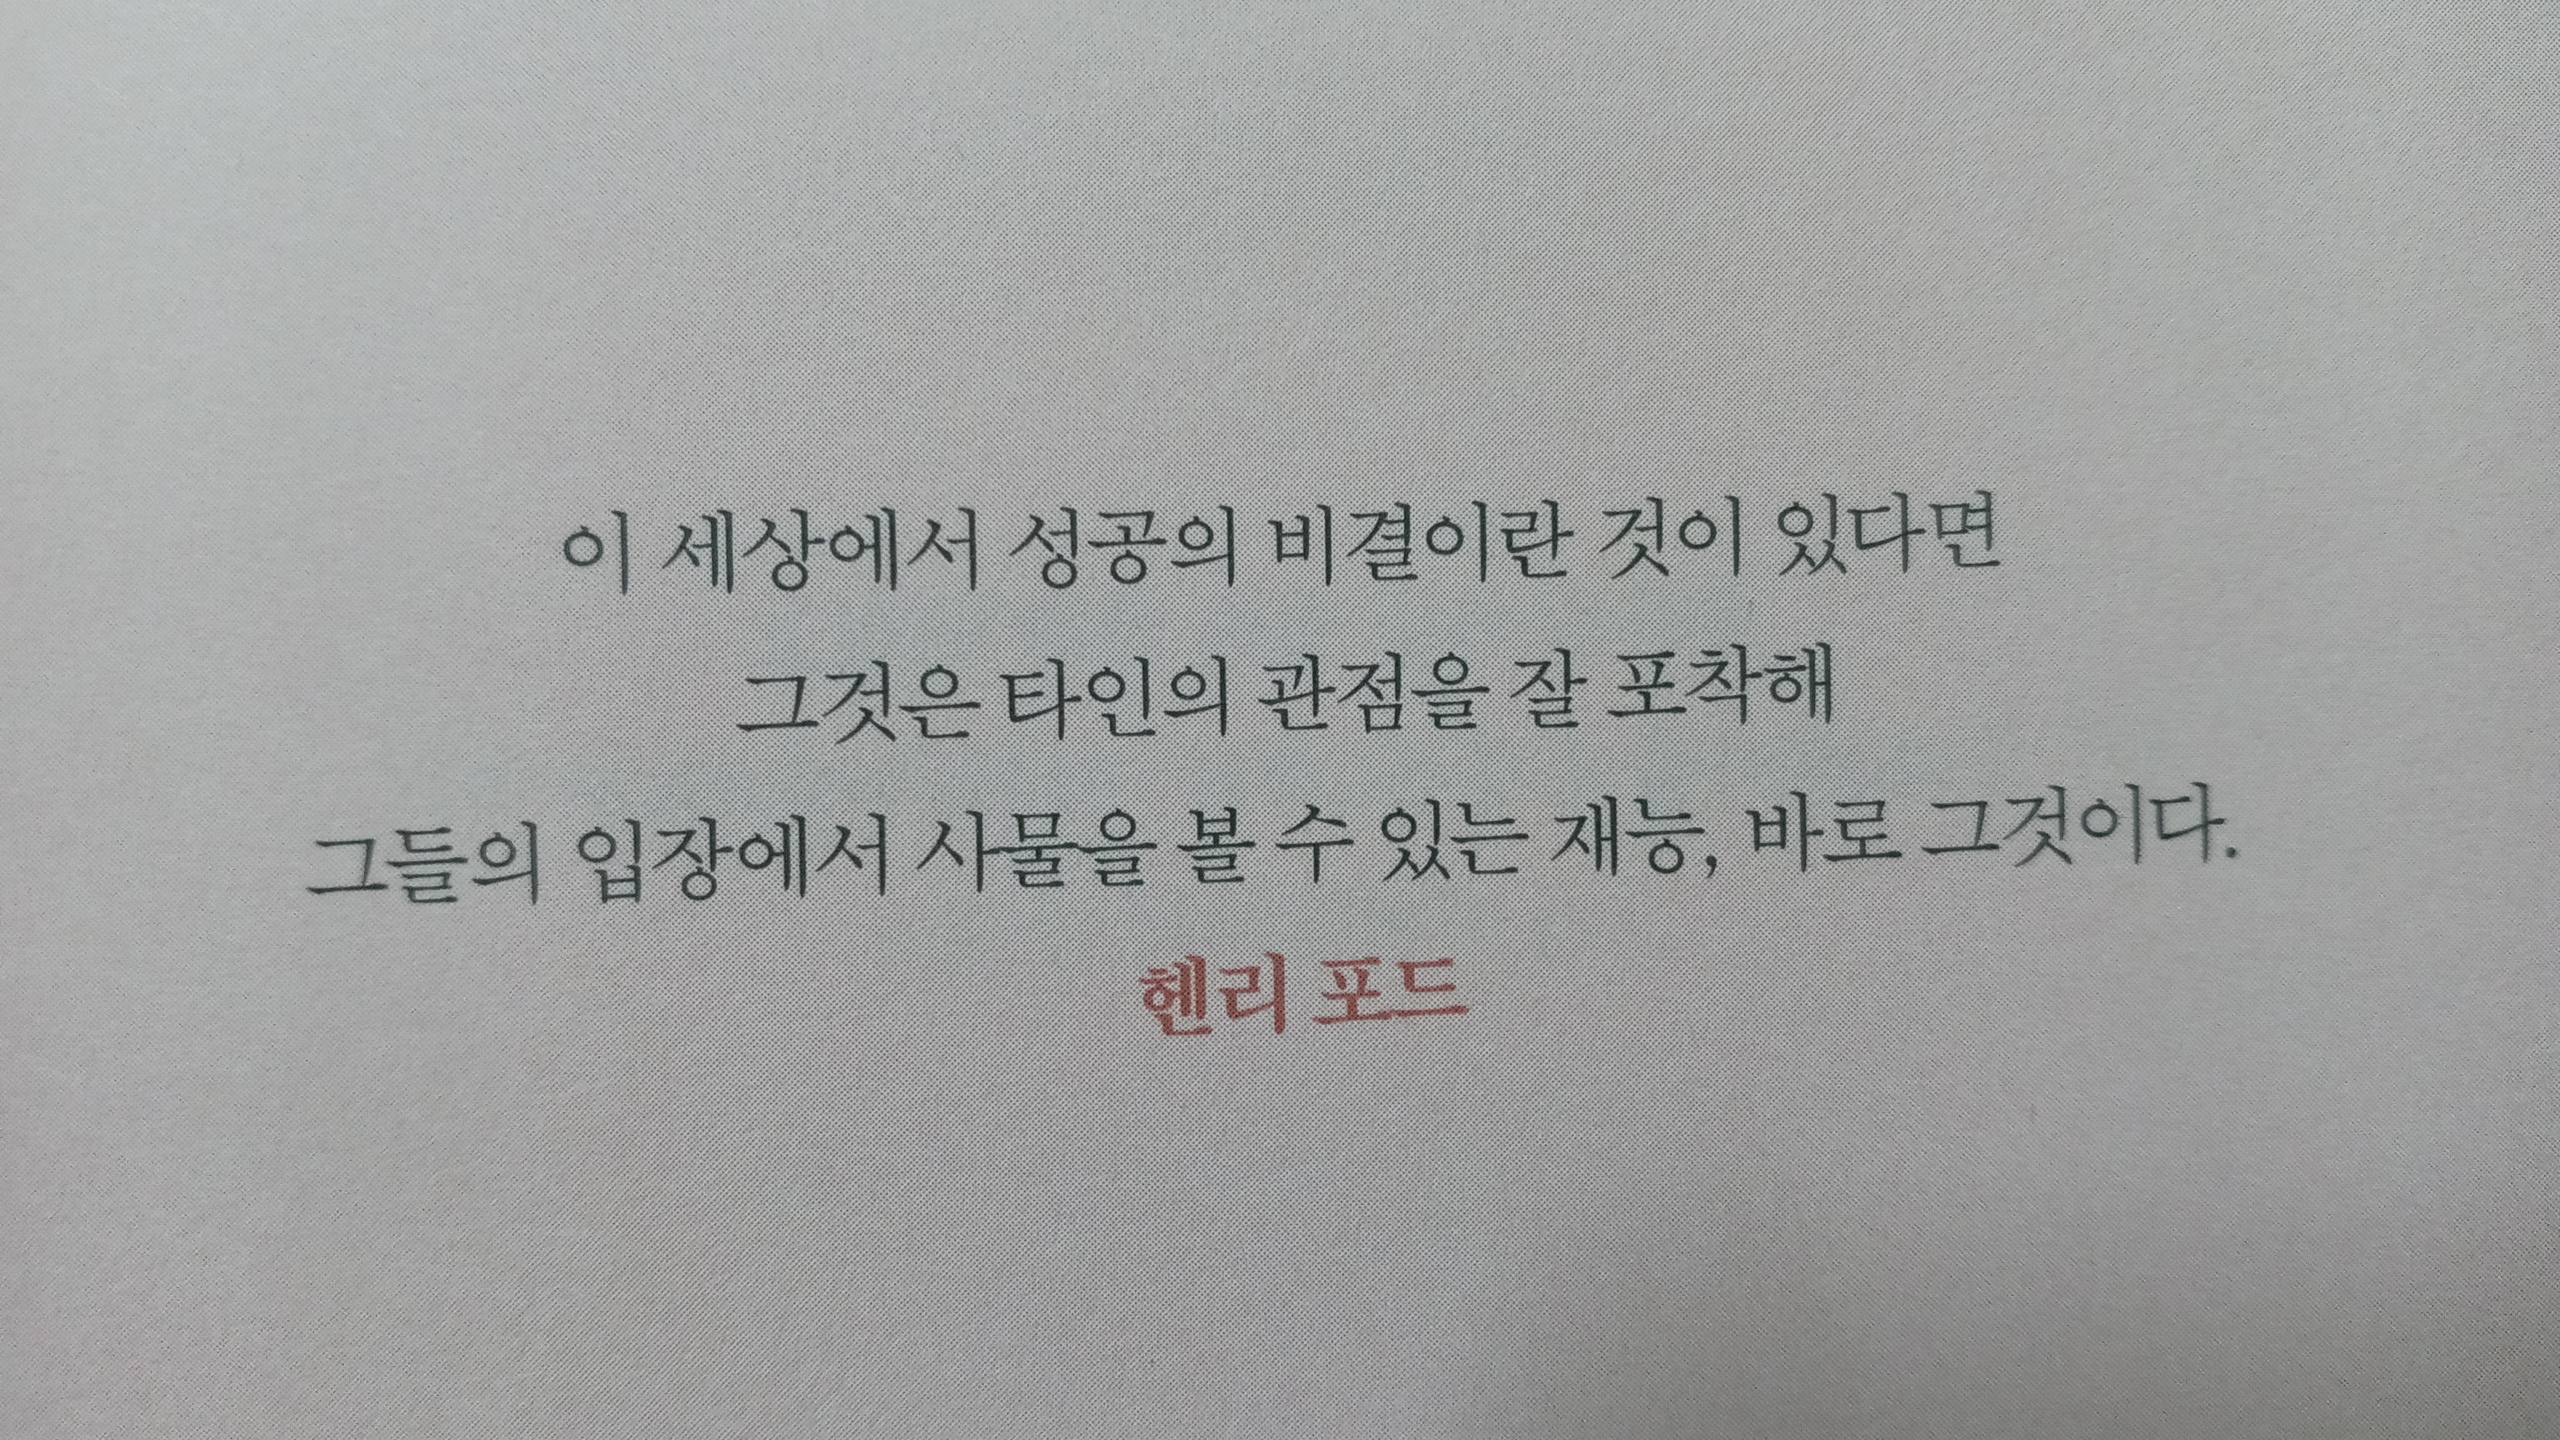 이 세상에서 성공의 비결이란 것이 있다면
그것은 타인의 관점을 잘 포착해
그들의 입장에서 사물을 볼 수 있는 재능, 바로 그것이다.
헨리 포드